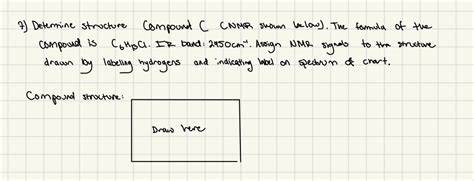 7) Determine structure Compound C (NMR shown below). The formula of the
compound is C₆H₁₃Cl. IR band: 2950cm⁻¹. Assign NMR signals to the structure
drawn by labeling hydrogens and indicating label on spectrum of chart.
Compound structure:
Draw here